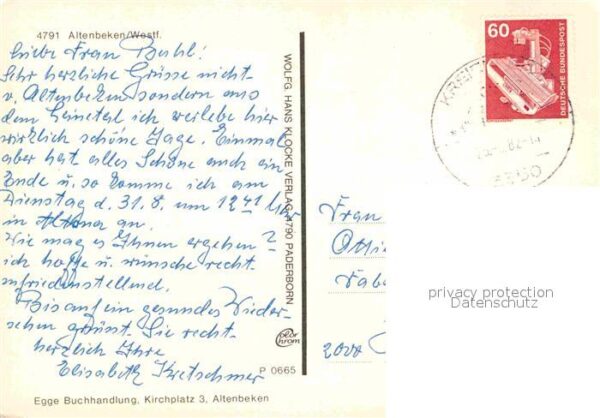 4791 Altenbeken/Westf.
Liebe Frau Buhl!
Sehr herzliche Grüsse nicht
v. Altenbeken sondern aus
dem Leinetal ich verlebe hier
wirklich schöne Tage. Einmal
aber hat alles Schöne auch ein
Ende u. so komme ich am
Dienstag d. 31.8. um 12 41 Uhr
in Altona an.
Wie mag es Ihnen ergehen?
ich hoffe u. wünsche recht
zufriedenstellend.
Bis auf ein gesundes Wieder-
sehen grüsst Sie recht
herzlich Ihre
Elisabeth Kretschmer
P 0665
Egge Buchhandlung, Kirchplatz 3, Altenbeken
WOLFG. HANS KLOCKE VERLAG 4790 PADERBORN
60
DEUTSCHE BUNDESPOST
Frau
Otti
2000
privacy protection
Datenschutz